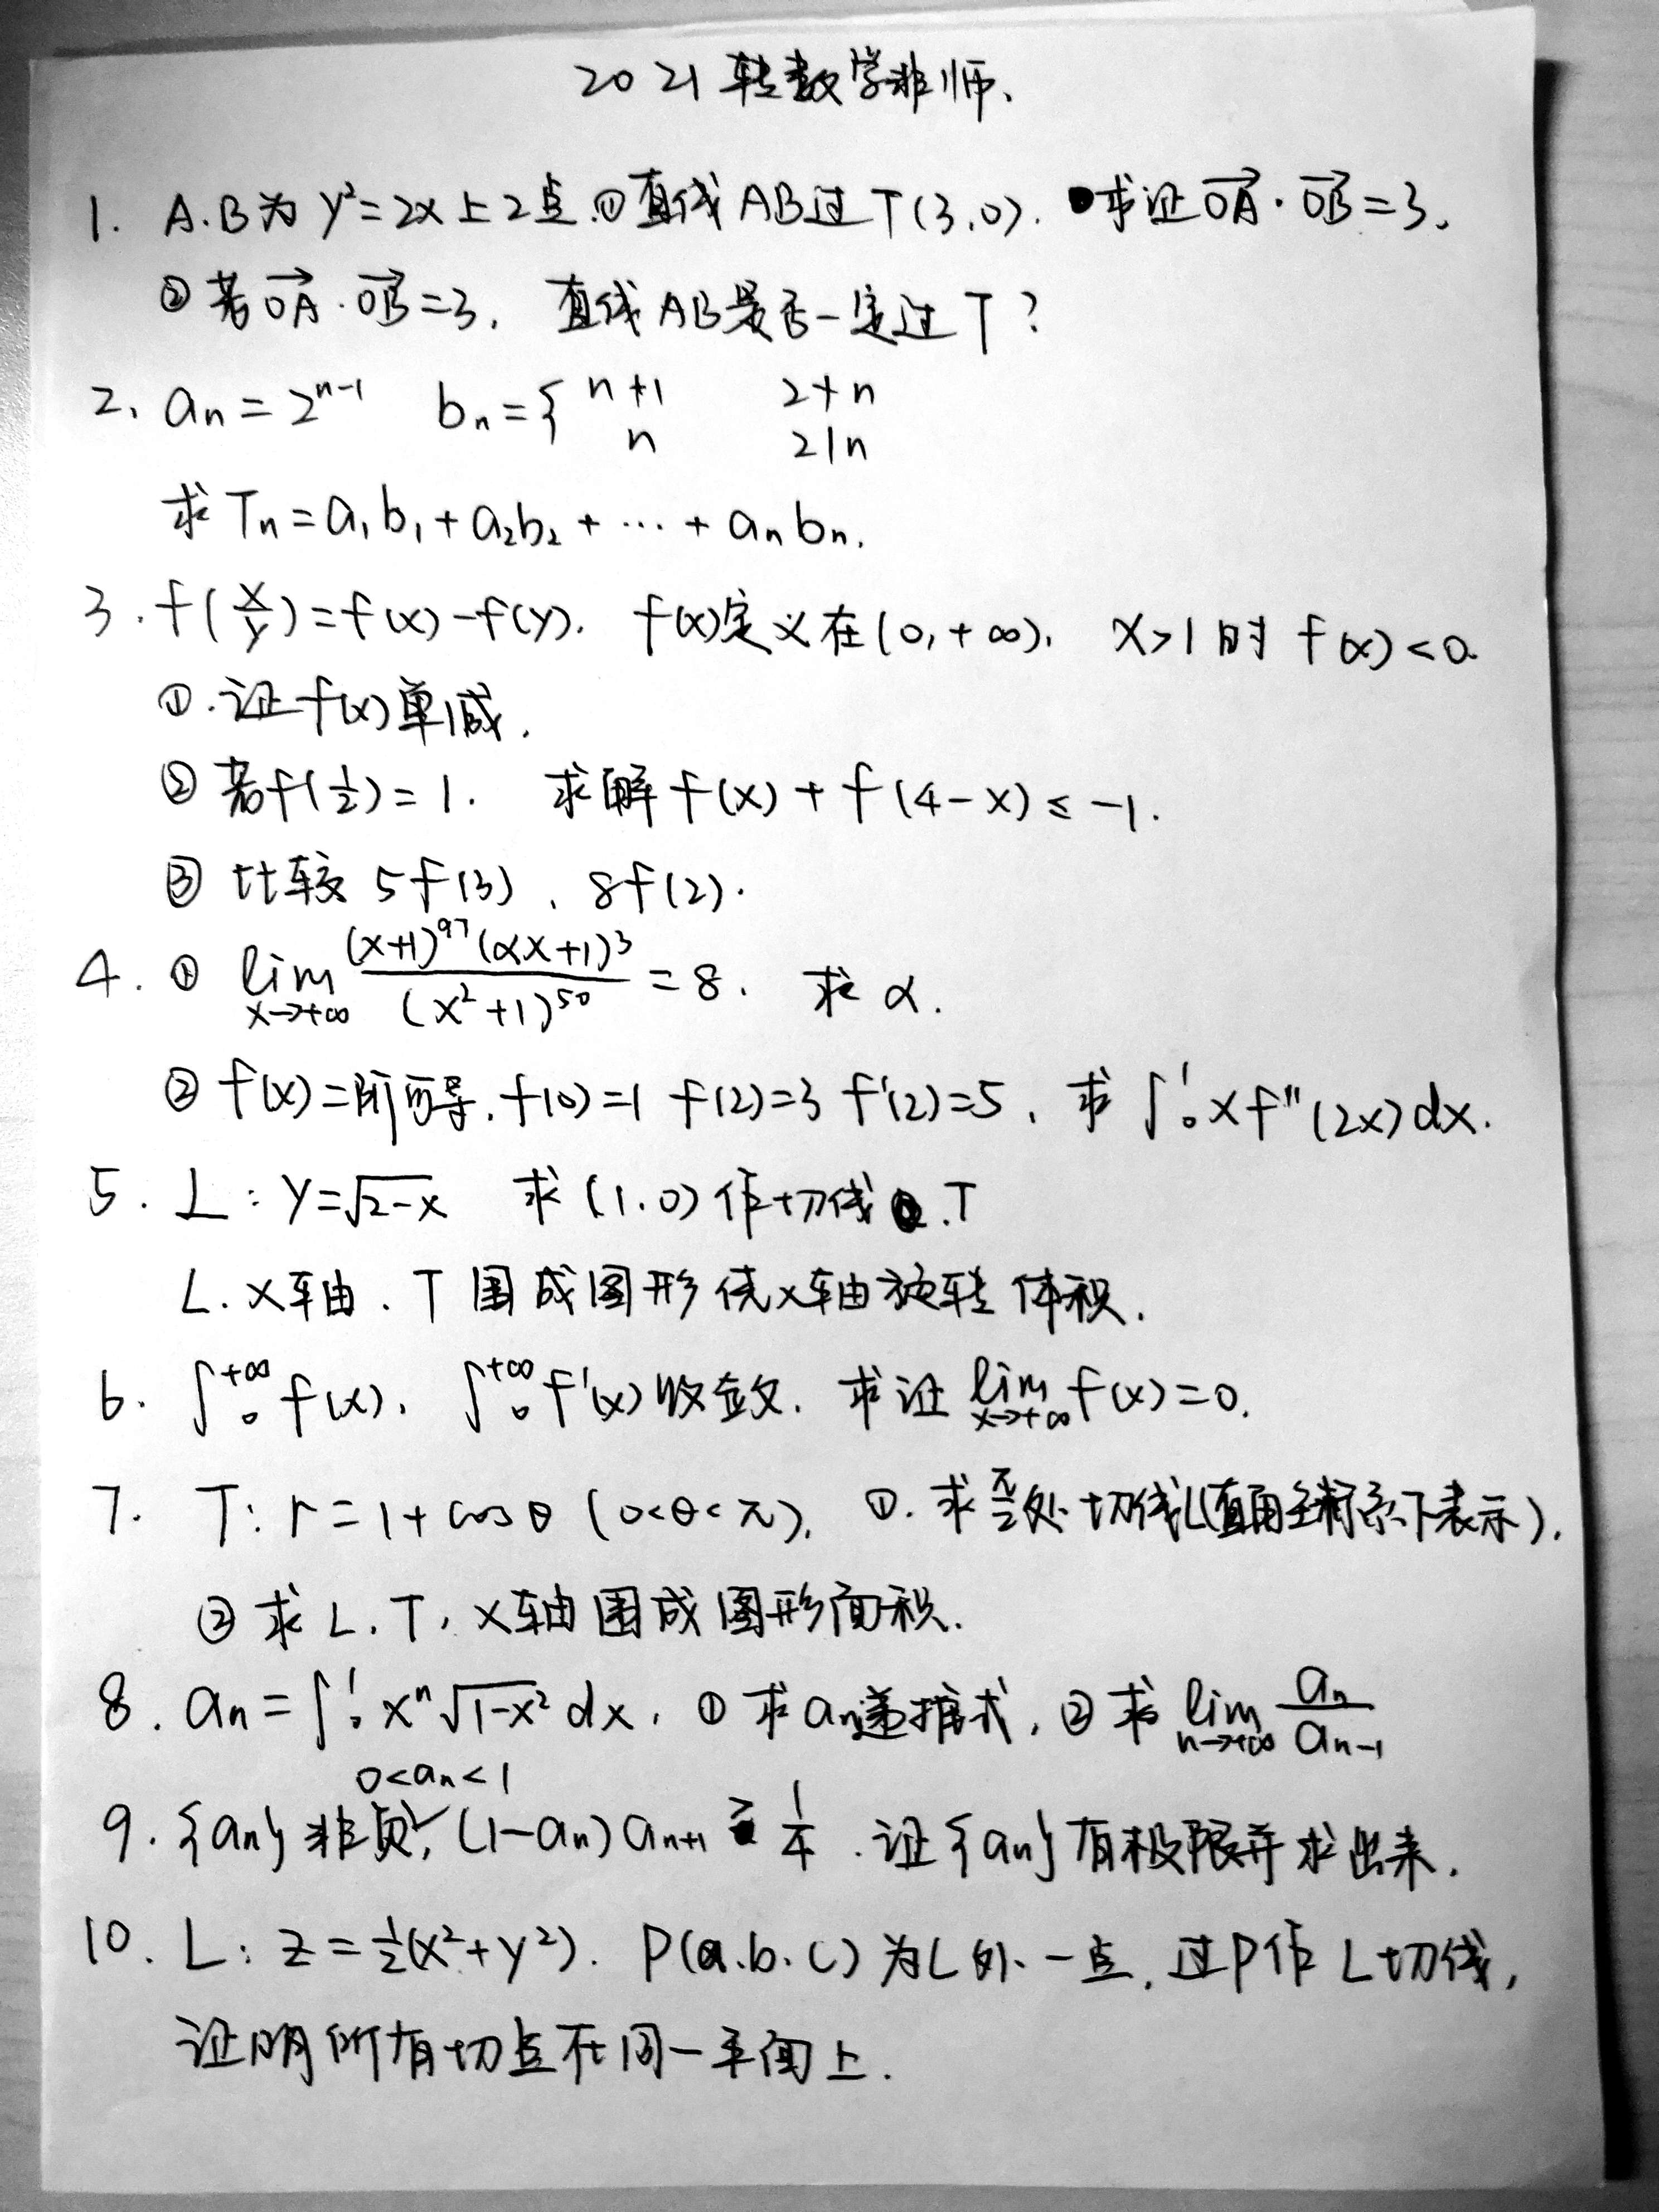 2021转数学非师、
1. A.B为 y²=2x上2点.①直线AB过T(3,0). 求证 $\overrightarrow{OA}·\overrightarrow{OB}$=3.
②若 $\overrightarrow{OA}·\overrightarrow{OB}$=3, 直线AB是否一定过T?
2. $a_n = 2^{n-1}$ $b_n = \{ n+1$ 2∤n
n 2|n
求 $T_n = a_1b_1 + a_2b_2 + ··· + a_nb_n$.
3. $f(\frac{x}{y}) = f(x) - f(y)$. f(x)定义在(0,+∞), x>1时 f(x)<0.
①.证f(x)单减.
②若f($\frac{1}{2}$)=1. 求解 f(x)+f(4-x)≤-1.
③ 比较 5f(3)、8f(2).
4. ① $\lim_{x→+∞} \frac{(x+1)^{97}(αx+1)^3}{(x^2+1)^{50}} = 8$. 求α.
② f(x)二阶可导.f(0)=1 f(2)=3 f'(2)=5, 求 $\int_0^1 xf''(2x)dx$.
5. L: y=$\sqrt{2-x}$ 求(1.0)作切线.T
L.x轴.T围成图形绕x轴旋转体积.
6. $\int_0^{+∞} f(x)$, $\int_0^{+∞} f'(x)$收敛. 求证 $\lim_{x→+∞} f(x)=0$.
7. T: r=1+cosθ (0<θ<π), ①.求$\frac{π}{2}$处切线L(直角坐标系下表示).
②求L.T, x轴围成图形面积.
8. $a_n = \int_0^1 x^n\sqrt{1-x^2}dx$, ①求$a_n$递推式, ②求 $\lim_{n→+∞} \frac{a_n}{a_{n-1}}$
0<$a_n$<1
9. {$a_n$}非负, (1-$a_n$)$a_{n+1}$ ≥ $\frac{1}{4}$.证{$a_n$}有极限并求出来.
10. L: z=$\frac{1}{2}$(x²+y²). P(a.b.c)为L外一点.过P作L切线,
证明所有切点在同一平面上.